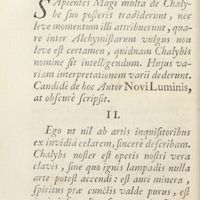 SApientes Magi multa de Chaly-
be suo posteris tradiderunt, nec
leve momentum illi attribuerunt, qua-
re inter Alchymistarum vulgus non
leve est certamen, quidnam Chalybis
nomine sit intelligendum. Hujus va-
riam interpretationem varii dederunt.
Candidè de hoc Autor Novi Luminis,
at obscurè scripsit.
II.
Ego ut nil ab artis inquisitoribus
ex invidia celarem, sincerè describam.
Chalybs noster est operis nostri vera
clavis, sine quo ignis lampadis nulla
arte potest accendi: est auri minera,
spiritus præ cunctis valde purus, est